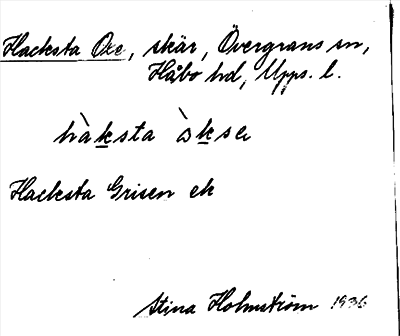 Hacksta Oxe, skär, Övergrans sn,
Håbo hd, Upps. l.
hàksta òksa
Hacksta Grisen ek
Stina Holmström 1936